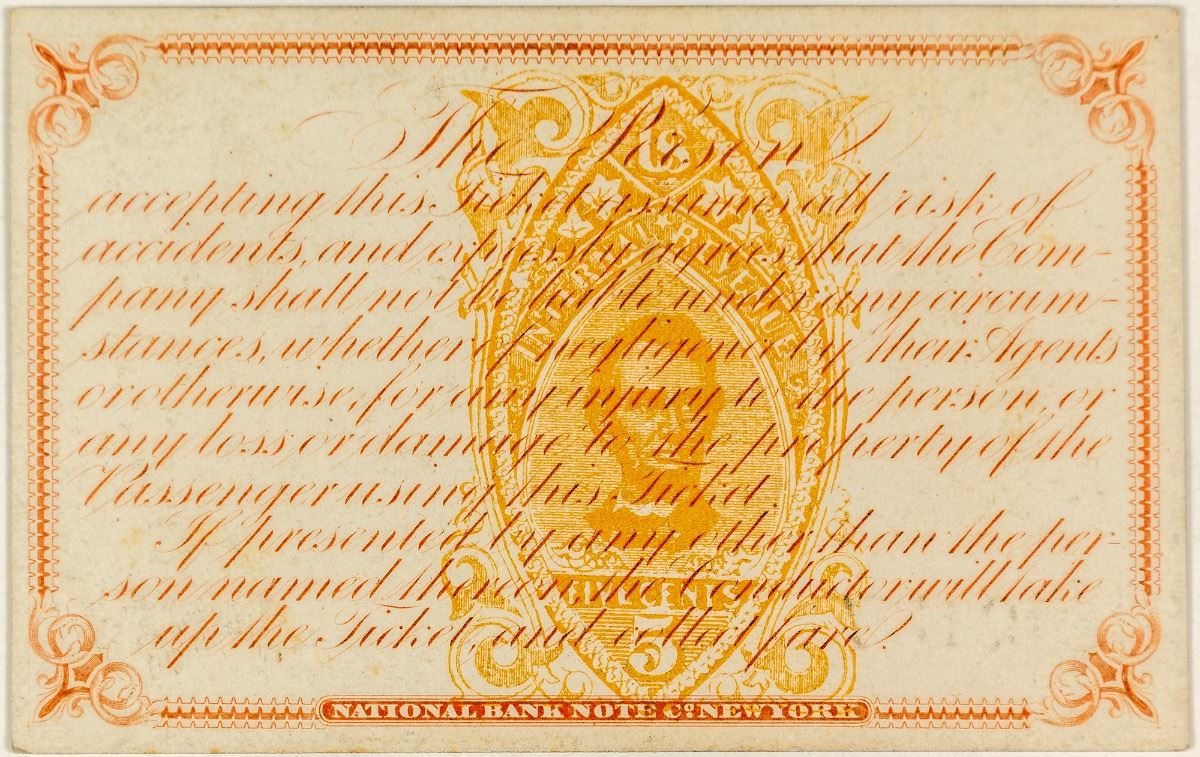 The Person
accepting this Ticket assumes all risk of
accidents, and expressly agrees that the Com-
pany shall not be liable under any circum-
stances, whether of negligence by their Agents
or otherwise, for any injury to the person, or
any loss or damage to the property of the
Passenger using this Ticket.
If presented by any other than the per-
son named therein the Conductor will take
up the Ticket, and collect fare.
INTERNAL REVENUE
FIVE CENTS
5
NATIONAL BANK NOTE Co. NEW YORK